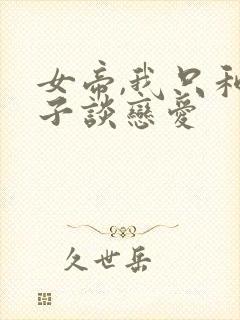 女帝,我只和
子談戀愛
久世岳